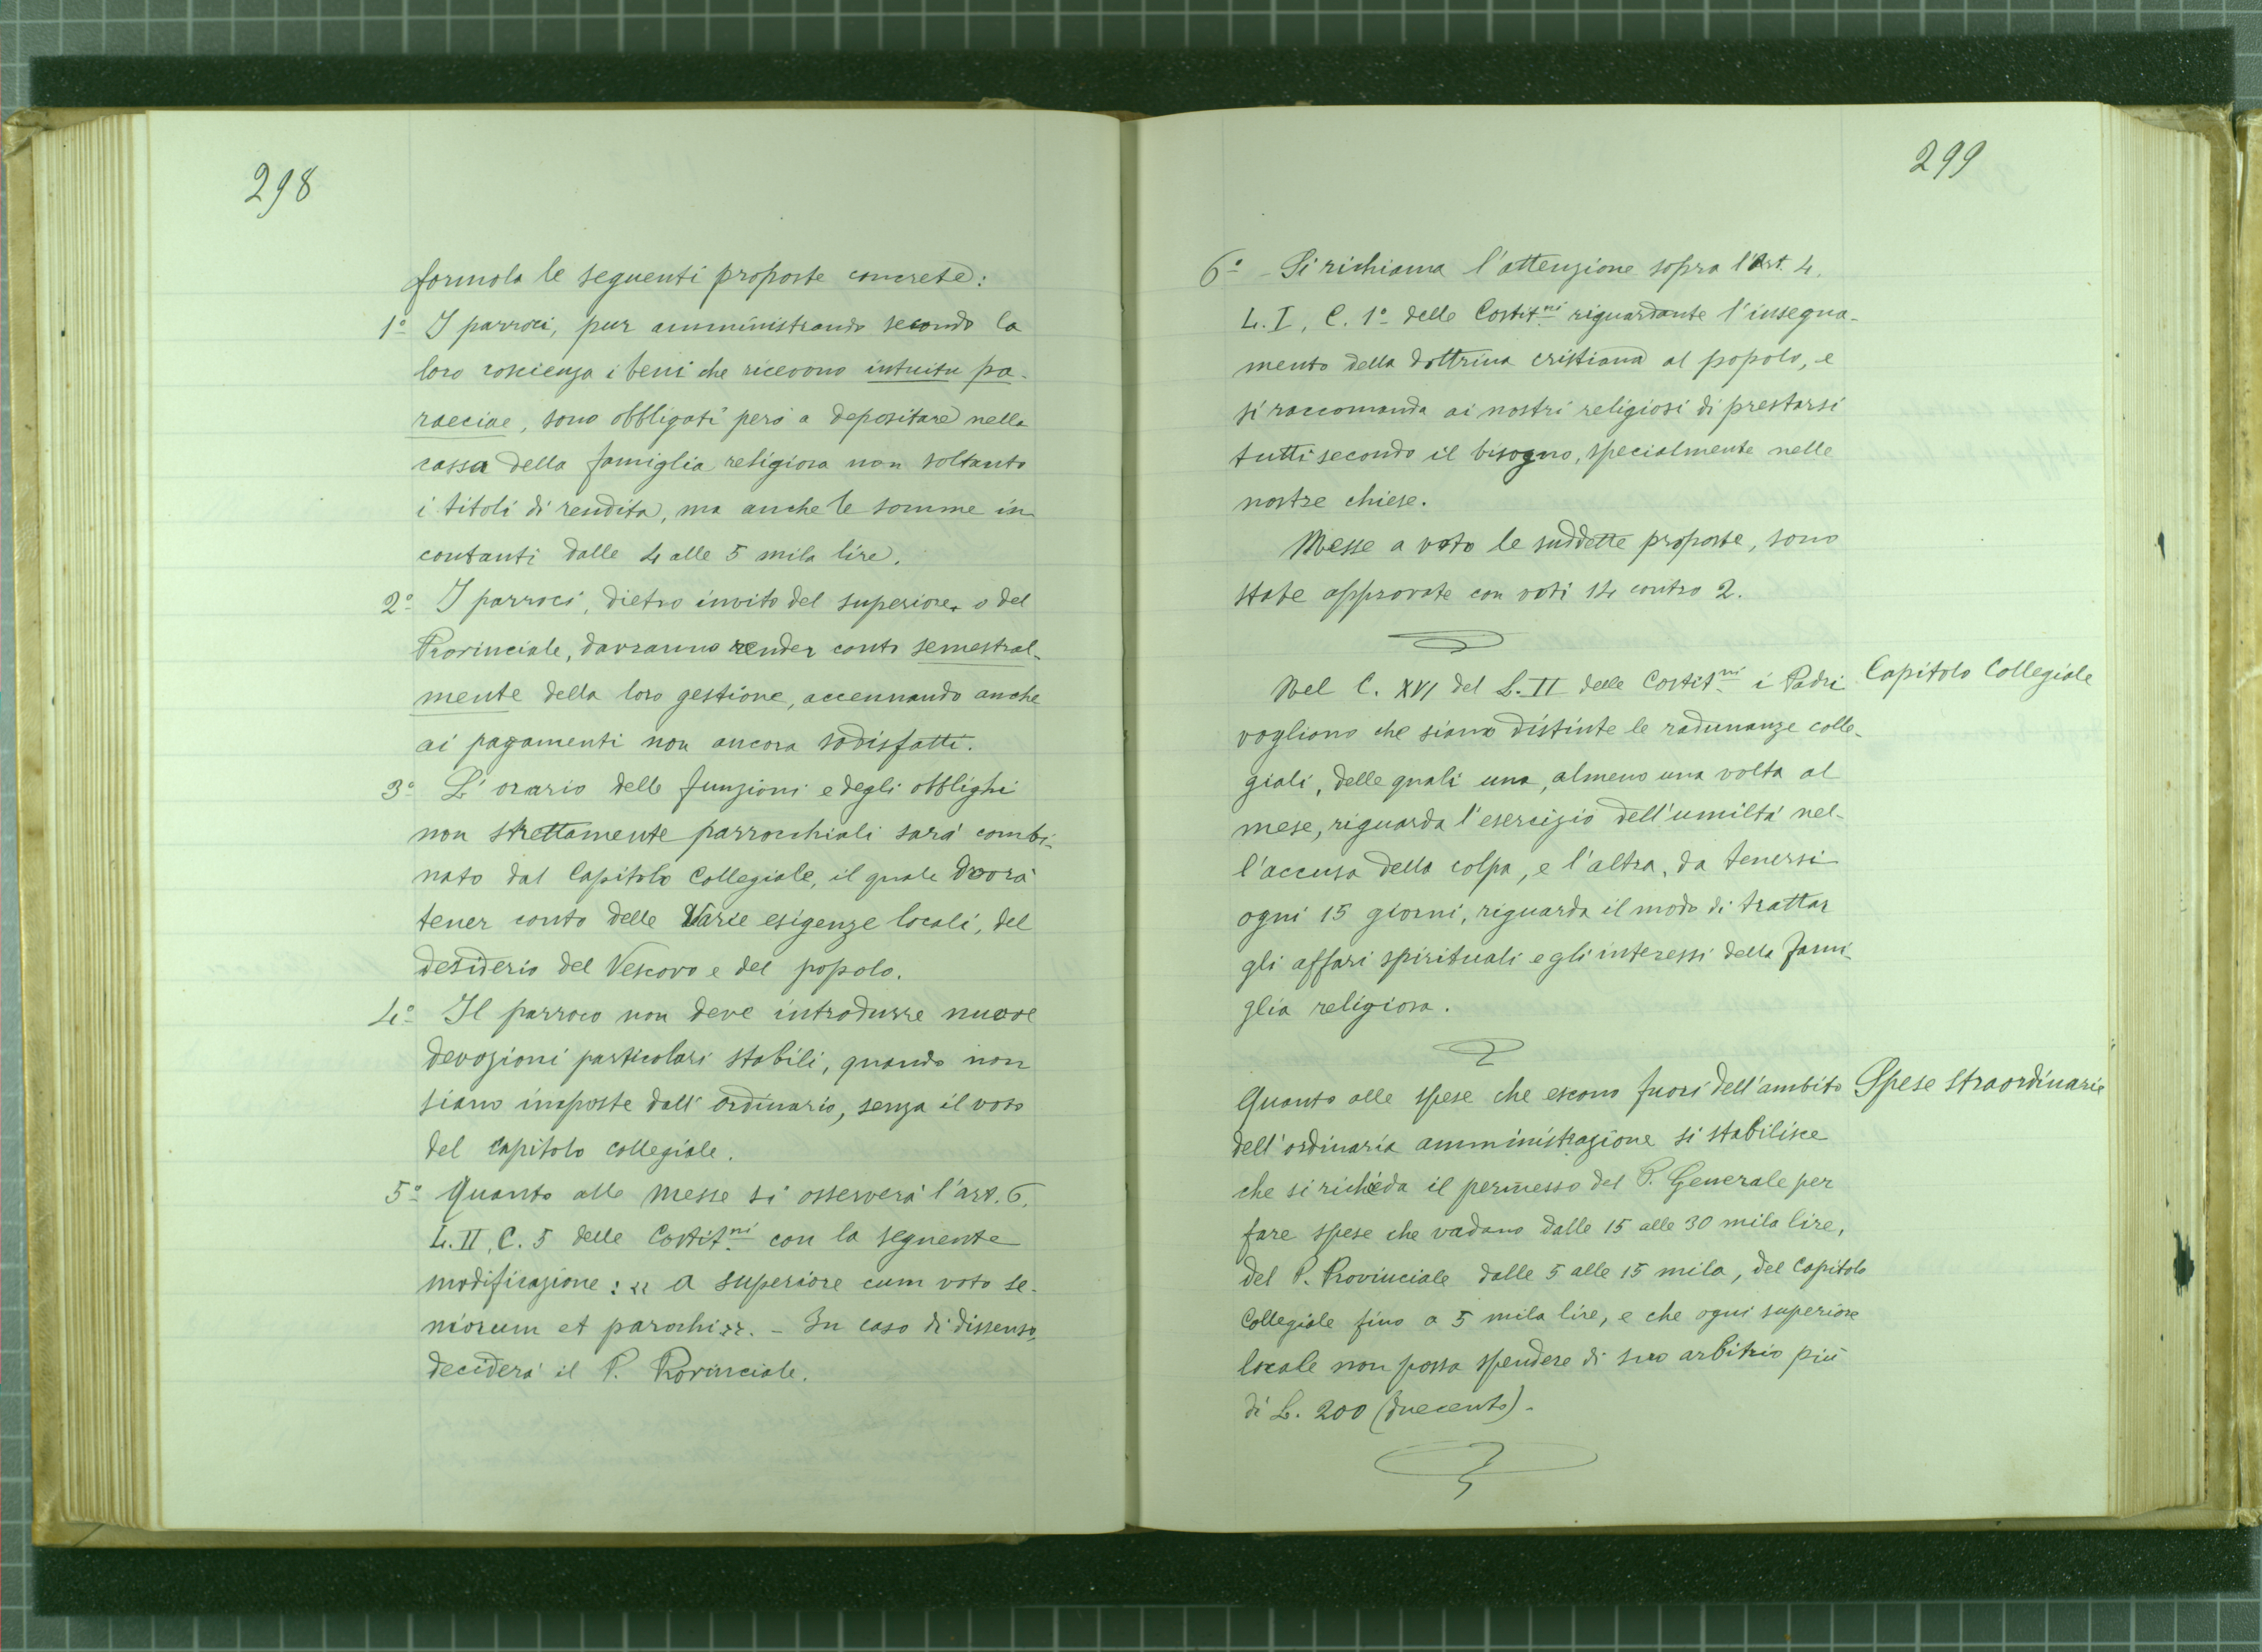 298
formola le seguenti proposte concrete:
1º I parroci, pur amministrando secondo la
loro coscienza i beni che ricevono intuitu pa-
raeciae, sono obbligati però a depositare nella
cassa della famiglia religiosa non soltanto
i titoli di rendita, ma anche le somme in
contanti dalle 4 alle 5 mila lire.
2º I parroci, dietro invito del superiore o del
Provinciale, dovranno render conto semestral-
mente della loro gestione, accennando anche
ai pagamenti non ancora sodisfatti.
3º L'orario delle funzioni e degli obblighi
non strettamente parrocchiali sarà combi-
nato dal Capitolo Collegiale, il quale dovrà
tener conto delle varie esigenze locali, del
desiderio del Vescovo e del popolo.
4º Il parroco non deve introdurre nuove
devozioni particolari stabili, quando non
siano imposte dall'ordinario, senza il voto
del Capitolo collegiale.
5º Quanto alle Messe si osserverà l'art. 6.
L. II, C. 5 delle Costit.ni con la seguente
modificazione: « a superiore cum voto se-
niorum et parochi ». - In caso di dissenso,
deciderà il P. Provinciale.
299
6º - Si richiama l'attenzione sopra l'Art. 4.
L. I, C. 1º delle Costit.ni riguardante l'insegna-
mento della dottrina cristiana al popolo, e
si raccomanda ai nostri religiosi di prestarsi
tutti secondo il bisogno, specialmente nelle
nostre chiese.
Messe a voto le suddette proposte, sono
state approvate con voti 14 contro 2.
Capitolo Collegiale
Nel C. XVI del L. II delle Costit.ni i Padri
vogliono che siano distinte le radunanze colle-
giali, delle quali una, almeno una volta al
mese, riguarda l'esercizio dell'umiltà nel-
l'accusa della colpa, e l'altra, da tenersi
ogni 15 giorni, riguarda il modo di trattar
gli affari spirituali e gli interessi della fami-
glia religiosa.
Spese straordinarie
Quanto alle spese che escono fuori dell'ambito
dell'ordinaria amministrazione si stabilisce
che si richieda il permesso del P. Generale per
fare spese che vadano dalle 15 alle 30 mila lire,
del P. Provinciale dalle 5 alle 15 mila, del Capitolo
Collegiale fino a 5 mila lire, e che ogni superiore
locale non possa spendere di suo arbitrio più
di L. 200 (duecento).